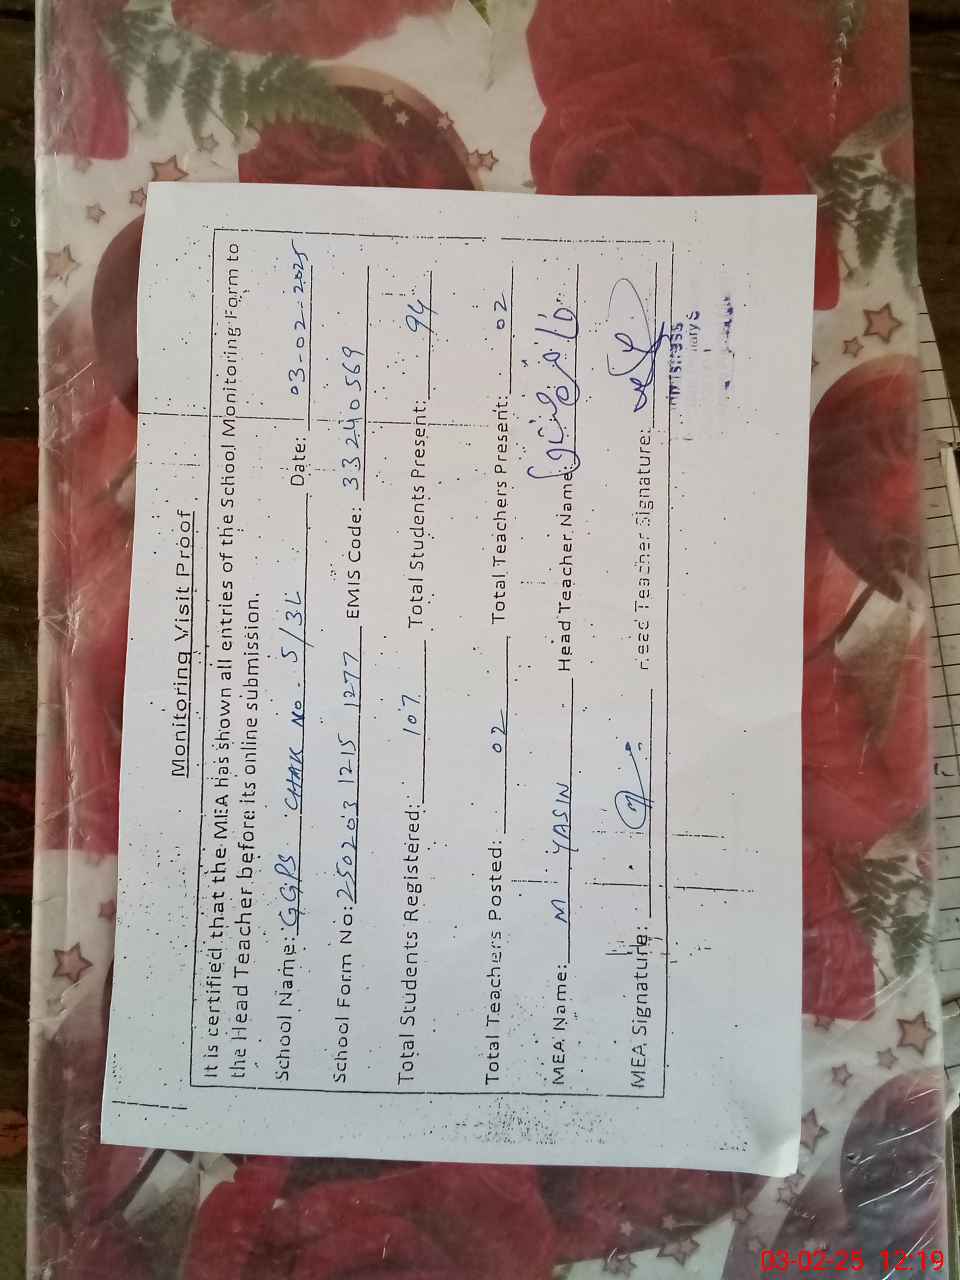 Monitoring Visit Proof
It is certified that the MEA has shown all entries of the School Monitoring Form to
the Head Teacher before its online submission.
School Name: GGPS CHAK No. 5/3L Date: 03-02-2025
School Form No: 250203 1215 1277 EMIS Code: 33240569
Total Students Registered: 107 Total Students Present: 94
Total Teachers Posted: 02 Total Teachers Present: 02
MEA Name: M YASIN Head Teacher Name:
MEA Signature: Head Teacher Signature:
03-02-25 12:19